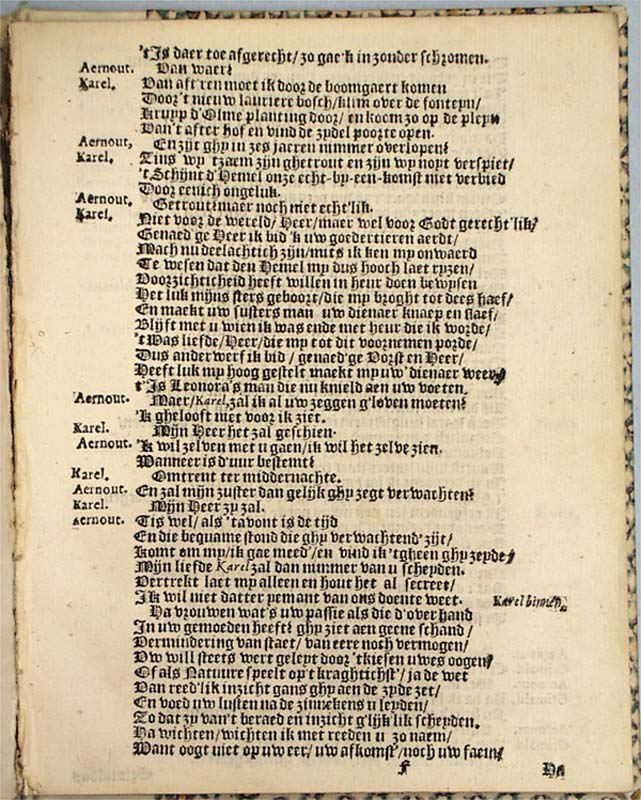 't Is daer toe afgerecht/ zo gae'k in zonder schromen.
Aernout. Van waer?
Karel. Van aft'ren moet ik door de boomgaert komen
Door 't nieuw lauriere bosch/ klim over de fonteyn/
Kruyp d'Olme planting door/ en koom zo op de pleyn
Van't after hof en vind de zydel poorte open.
Aernout, En zijt ghy in zes jaeren nimmer overlopen?
Karel. Tius wy t'zaem zijn ghetrout en zijn wy noyt verspiet/
't Schijnt d'Hemel onze echt-by-een-komst niet verbied
Door eenich ongeluk.
Aernout. Getrout? maer noch niet echt'lik.
Karel. Niet voor de wereld/ Heer/ maer wel voor Godt gerecht'lik?
Genaed'ge Heer ik bid 'k uw goedertieren aerdt/
Mach nu deelachtich zijn/ mits ik ken my onwaerd
Te wesen dat den Hemel my dus hooch laet ryzen/
Voorzichticheid heeft willen in heur doen bewysen
Het luk mijns sters geboort/ die my broght tot dees haef/
En maekt uw susters man uw dienaer knaep en slaef/
Blijft met u wien ik was ende met heur die ik worde/
't Was liefde/ Heer/ die my tot dit voornemen porde/
Dus anderwerf ik bid/ genaed'ge Vorst en Heer/
Heeft luk my hoog gestelt maekt my uw' dienaer weer/
t'Is Leonora's man die nu knield aen uw voeten.
Aernout. Maer/ Karel, zal ik al uw zeggen g'loven moeten?
'K ghelooft niet voor ik ziet.
Karel. Mijn Heer het zal geschien.
Aernout. 'k wil zelven met u gaen/ ik wil het zelve zien.
Wanneer is d'uur bestemt?
Karel. Omtrent ter middernachte.
Aernout. En zal mijn zuster dan gelijk ghy zegt verwachten?
Karel. Mijn Heer zy zal.
Aernout. Tis wel/ als 't avont is de tijd
En die bequame stond die ghy verwachtend' zijt/
Komt om my/ ik gae meed'/ en vind ik 'tgheen ghy zeyde/
Mijn liefde Karel zal dan nimmer van u scheyden.
Vertrekt laet my alleen en hout het al secreet/
Ik wil niet datter yemant van ons doente weet. Karel binnen.
Ha vrouwen wat's uw passie als die d'over hand
In uw gemoeden heeft? ghy ziet aen geene schand/
Vermindering van staet/ van eere noch vermogen/
Uw will steets wert geleyt door 't kiesen uwes oogen/
Of als Natuure speelt op't kraghtichst/ ja de wet
Van reed'lik inzicht gans ghy aen de zyde zet/
En voed uw lusten na de zinnekens u leyden/
To dat zy van't beraed en inzicht g'lijk lik scheyden.
Ha wichten/ wichten ik met reeden u zo naem/
Want oogt niet op uw eer/ uw afkomst/ noch uw faem/
f Ha